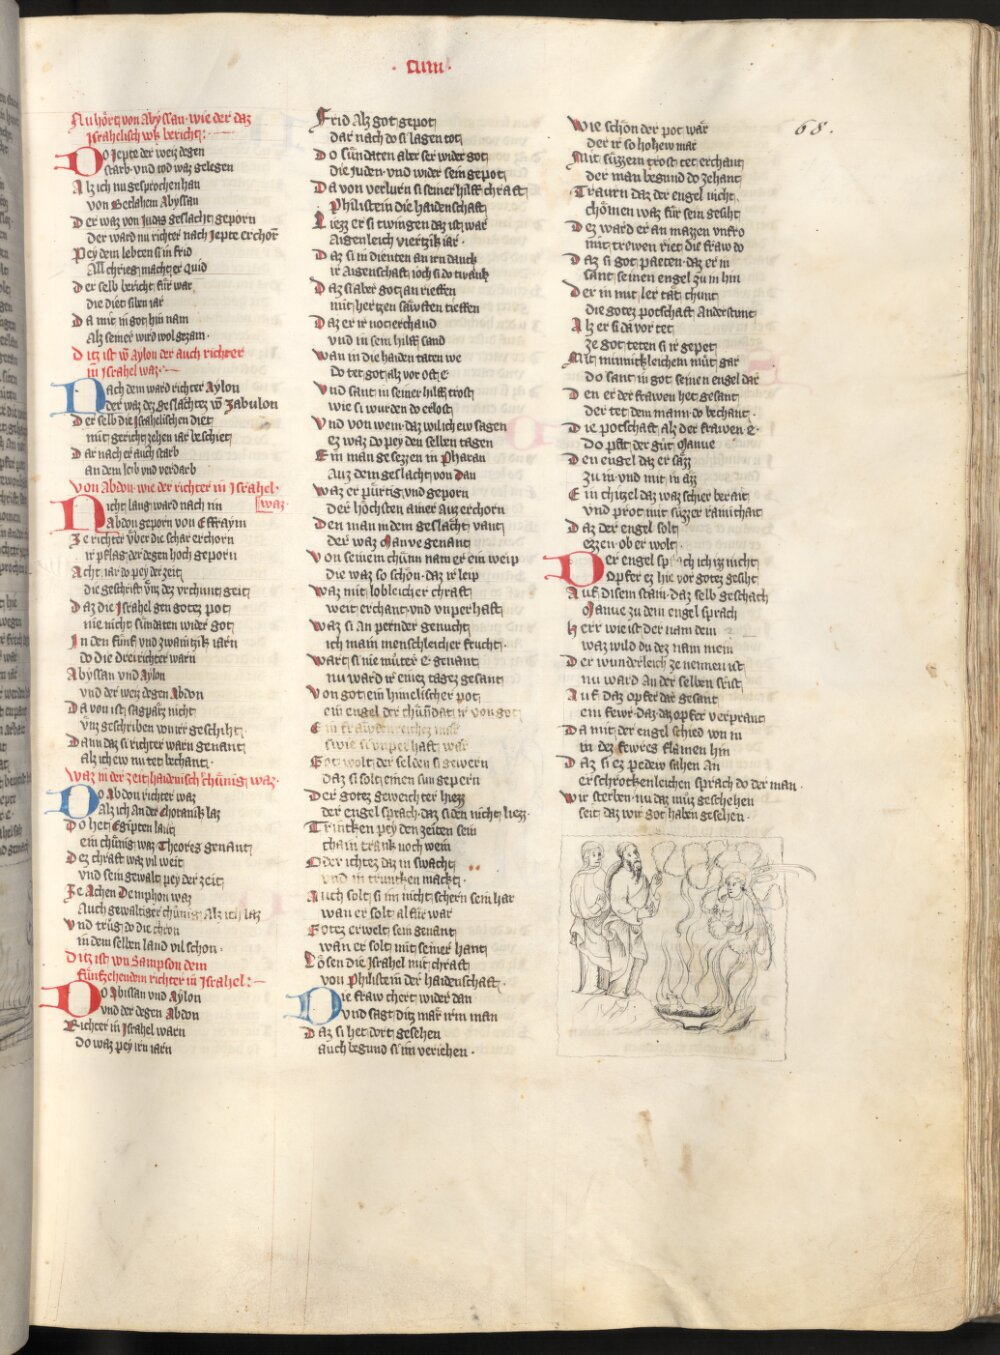 · CLIIII ·
68.
Nu hört von Abyssan · wie der daz
Israhelisch volk bericht :
Do Jepte der weiz degen
starb · und tod waz gelegen
Alz ich nu gesprochen han
von Betlahem Abyssan
Der waz von Judas geslacht geporn
der ward nu richter nach Jepte erchorn
Pey dem lebten si in frid
All chrieg macht er quid
Der selb bericht für war
die diet siben iar
Da mit in got hin nam
Alz seiner wird wol gezam ·
Ditz ist võ Aylon der auch richter
in Israhel waz ·
Nach dem ward richter Aylon
der waz dez geslächtez võ Zabulon
Der selb die Israhelischen diet
mit gericht zehen iar beschiet
Dar nach er auch starb
an dem leib und verdarb
Von Abdon · wie der richter in Israhel ·
waz ·
Nicht lang ward nach im
Abdon geporn von Effraym
Ze richter über die schar erchorn
ir pflag der degen hoch geporn
Acht iar do pey der zeit
die geschrift üns dez urchunt geit
Daz die Israhel gen gotez pot
nie nicht sündaten wider got
In den fünf und zwaintzik iarn
do die drei richter warn
Abyssan und Aylon
und der weiz degen Abdon
Da von ist sagpärz nicht
üns geschriben in uir geschiht
Dann daz si richter warn genant
alz ich ew nu tet bechant ·
Waz in der zeit haidenisch chünig waz ·
Do Abdon richter waz
Alz ich an der Choranik laz
Do het Egipten laut
ein chünig waz Theores genant
Dez chraft waz vil weit
und sein gewalt pey der zeit
Ze Achen Demphon waz
Auch gewaltiger chünig Alz ich laz
Und trüg do die chron
in dem selben land vil schon ·
Ditz ist von Sampson dem
fünfzehendem richter in Israhel :
Do Abissan und Aylon
und der degen Abdon
Richter in Israhel warn
do waz pey irn iarn
Frid Alz got gepot
dar nach do si lagen tot
Do sündaten aber ser wider got
die Juden · und wider sein gepot
Da von verlurn si seiner hilff chraft
Philistein die haidenschaft
Liezz er si twingen daz ist war
Aigenleich viertzik iar ·
Daz si in dienten an irn danck
ir Aigenschaft ioch si do twank
Daz si aber got an rieffen
mit hertzen säwften tieffen
Daz er ir not erchand
und in sein hilff sand
Wan in die haiden taten we
do tet got alz vor oft e
Und sant in seiner hilff trost
wie si wurden do erlost
Und von wem · daz wil ich ew sagen
ez waz do pey den selben tagen
Ein man gesezzen in Pharan
Auz dem geslacht von Dan
Waz er pürtig und geporn
der höchsten ainer auz erchorn
Den man in dem geslacht vant
der waz Manue genant
Von seinem chünn nam er ein weip
die waz so schön · daz ir leip
Waz mit lobleicher chraft
weit erchant · und unperhaft
Waz si An pernder genucht
ich main menschleicher frucht ·
Wart si nie müter e · genant
nu ward ir einez tagez gesant
Von got ein himelischer pot
ein engel der chündat ir von got
Ein frawdenreichez mär
swie si unperhaft wär
Got wolt der selden si gewern
daz si solt einen sun gepern
Der gotez geweichter hiezz
der engel sprach · daz si den nicht liezz ·
Trincken pey den zeiten sein
chain trank noch wein
Oder ichtez daz in swacht
und in truncken macht ·
Auch solt si im nicht schern sein har
wan er solt al für war
Gotez erwelt sein genant
wan er solt mit seiner hant
Lösen die Israhel mit chraft
von Philistein der haidenschaft ·
Die fraw chert wider dan
und sagt ditz mär irm man
Daz si het dort gesehen
auch begund si im veriehen ·
Wie schön der pot wär
der ir so hohew mär
Mit süzzem trost tet erchant
der man begund do zehant
Trauren daz der engel nicht
chömen waz für sein gesiht
Dez ward er an mazzen unfro
mit trowen riet die fraw do
Daz si got paeten · daz er in
sant seinen engel zu in hin
Der in mit ler tät chunt
die gotez potschaft Anderstunt
Alz er si da vor tet
ze got teten si ir gepet
Mit minnickleichem müt gar
do sant in got seinen engel dar
Den er der frawen het gesant
der tet dem mann do bechant ·
Die potschaft alz der frawen e ·
Do pat der güt Manue
Den engel daz er säzz
zu in und mit in äzz
Ein chitzel daz waz schier berait
und prot mit süzzer rainichait
Daz der engel solt
ezzen · ob er wolt ·
Der engel sprach ich izz nicht
Opfer ez hie vor gotez gesiht
Auf disem stain · daz selb geschach
Manue zu dem engel sprach
Herr wie ist der nam dein
waz wild du dez nam mein
Der wunderleich ze nennen ist
nu ward An der selben frist
Auf daz opfer dar gesant
ein fewr · daz · daz opfer verprant
Da mit der engel schied von in
in dez fewres flamen hin
Daz si ez pedew sahen An
erschrockenleichen sprach do der man ·
Wir sterben · nu daz müz geschehen
seit daz wir got haben gesehen ·